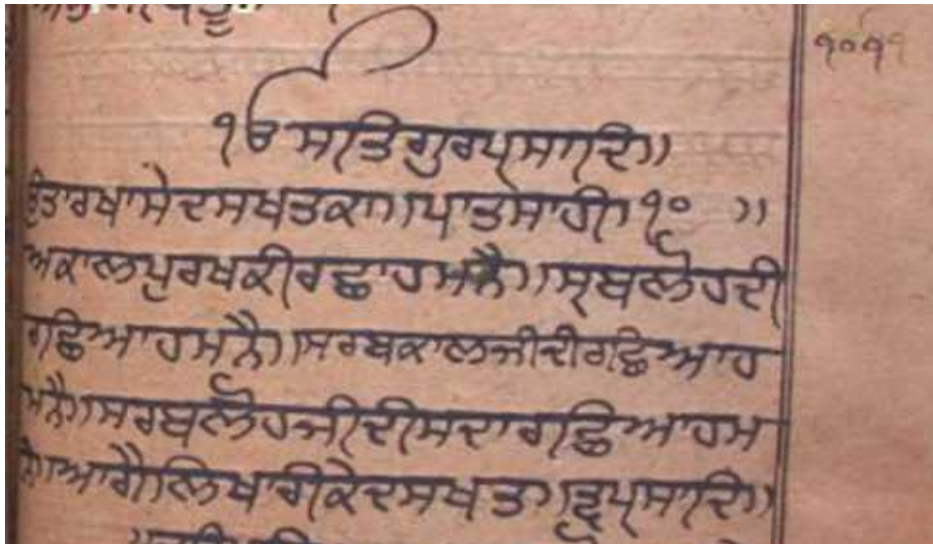 ੧੦੧੧
ੴ ਸਤਿਗੁਰਪ੍ਰਸਾਦਿ॥
ਉਤਾਰਖਾਸੇਦਸਖਤਕਾ॥ਪਾਤਸਾਹੀ ੧੦ ॥
ਅਕਾਲਪੁਰਖਕੀਰਛਾਹਮਨੈ॥ਸ੍ਰਬਲੋਹਦੀ
ਰਛਿਆਹਮਨੈ॥ਸਰਬਕਾਲਜੀਦੀਰਛਿਆਹ
ਮਨੈ॥ਸਰਬਲੋਹਜੀਦੀਸਦਾਰਛਿਆਹਮ
ਨੈ॥ਆਗੈਲਿਖਾਰੀਕੇਦਸਖਤ॥ਤ੍ਵਪ੍ਰਸਾਦਿ॥